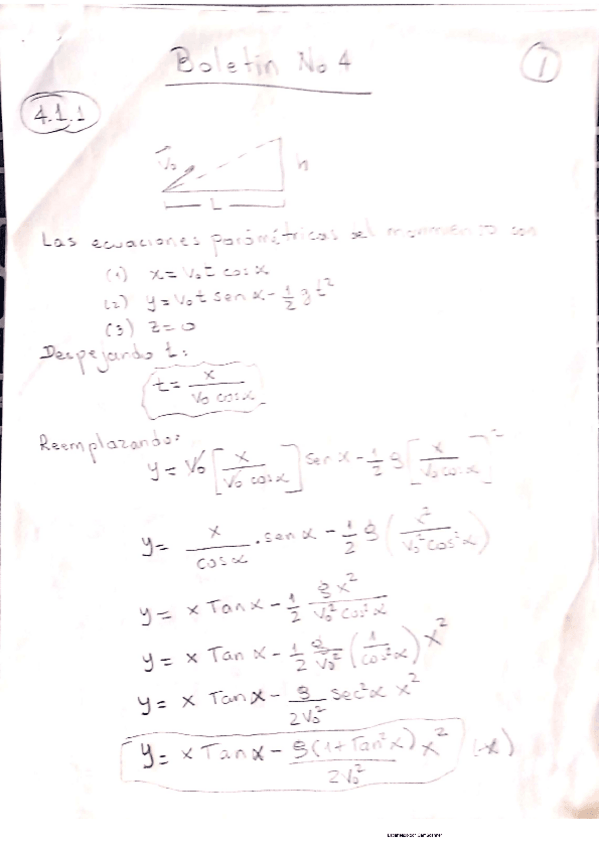 Boletin No 4
1
4.1.1
V₀
h
L
Las ecuaciones paramétricas del movimiento son
(1) x = V₀ t cos α
(2) y = V₀ t sen α - 1/2 g t²
(3) z = 0
Despejando t:
t = x / (V₀ cos α)
Reemplazando:
y = V₀ [x / (V₀ cos α)] sen α - 1/2 g [x / (V₀ cos α)]²
y = x / cos α . sen α - 1/2 g (x² / (V₀² cos² α))
y = x Tan α - 1/2 g x² / (V₀² cos² α)
y = x Tan α - 1/2 g / V₀² (1 / cos² α) x²
y = x Tan α - g / 2V₀² sec² α x²
y = x Tan α - g (1 + Tan² α) / 2V₀² x²